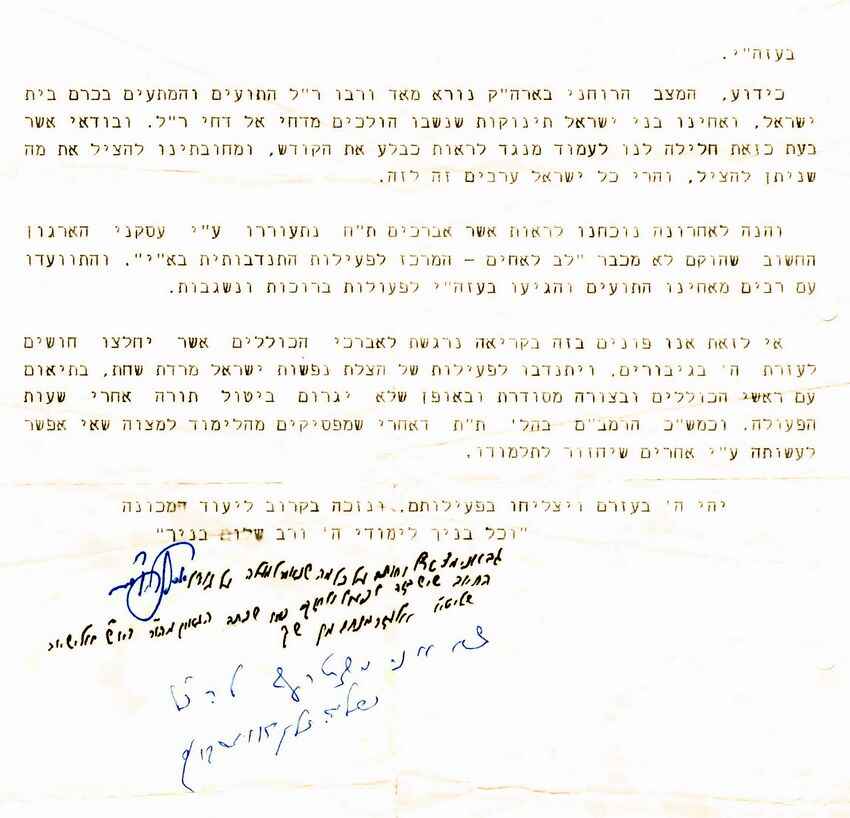 בעזה"י.
כידוע, המצב הרוחני בארה"ק נורא מאד ורבו ר"ל התועים והמתעים בכרם בית
ישראל, ואחינו בני ישראל תינוקות שנשבו הולכים מדחי אל דחי ר"ל. ובודאי אשר
בעת כזאת חלילה לנו לעמוד מנגד לראות כבלע את הקודש, ומחובתינו להציל את מה
שניתן להציל, והרי כל ישראל ערבים זה לזה.
והנה לאחרונה נוכחנו לראות אשר אברכים ת"ח נתעוררו ע"י עסקני הארגון
החשוב שהוקם לא מכבר "לב לאחים – המרכז לפעילות התנדבותית בא"י", והתוועדו
עם רבים מאחינו התועים והגיעו בעזה"י לפעולות ברוכות ונשגבות.
אי לזאת אנו פונים בזה בקריאה נרגשת לאברכי הכוללים אשר יחלצו חושים
לעזרת ה' בגיבורים, ויתנדבו לפעילות של הצלת נפשות ישראל מרדת שחת, בתיאום
עם ראשי הכוללים ובצורה מסודרת ובאופן שלא יגרום ביטול תורה אחרי שעות
הפעולה. וכמש"כ הרמב"ם בהל' ת"ת דאחרי שמפסיקים מהלימוד למצוה שאי אפשר
לעשותה ע"י אחרים שיחזור לתלמודו.
יהי ה' בעזרם ויצליחו בפעילותם, ונזכה בקרוב ליעוד המכונה
"וכל בניך לימודי ה' ורב שלום בניך"
גם אני מצטרף
שך